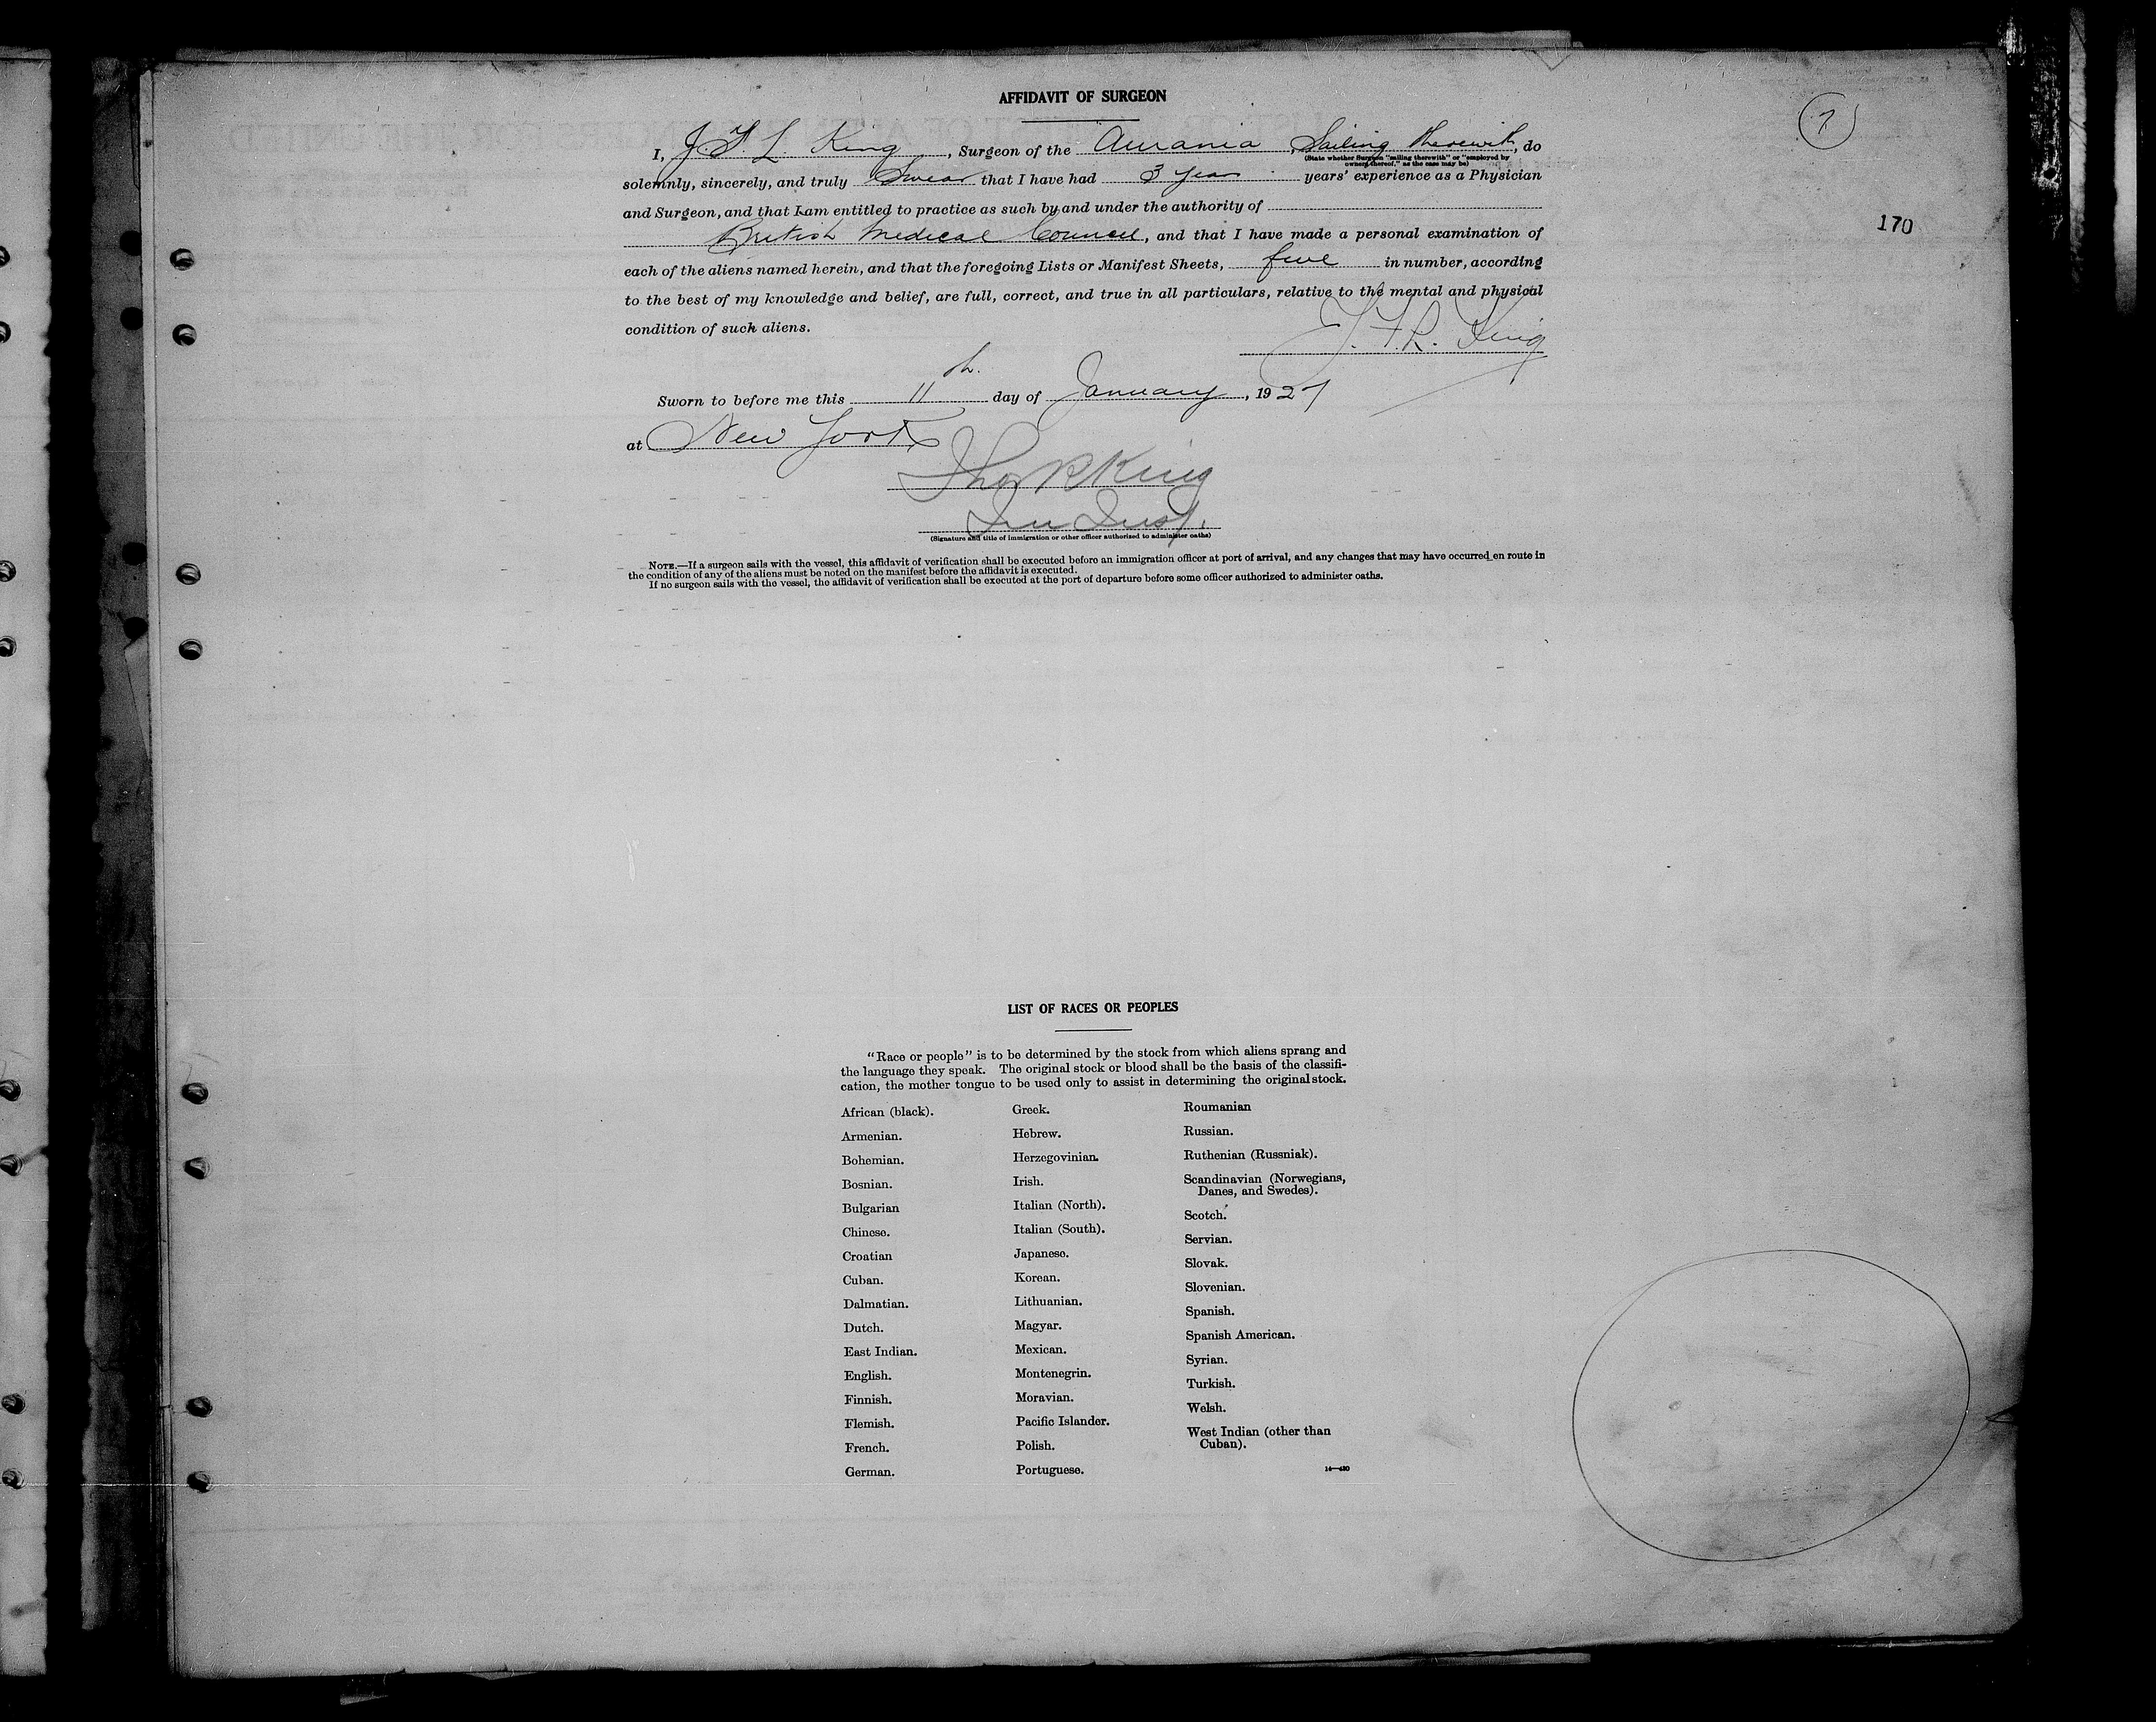 AFFIDAVIT OF SURGEON
7
I, J. F. L. King, Surgeon of the Aurania, Sailing therewith, do
(State whether Surgeon "sailing therewith" or "employed by
owners thereof," as the case may be)
solemnly, sincerely, and truly Swear that I have had 3 year years' experience as a Physician
and Surgeon, and that I am entitled to practice as such by and under the authority of
170
British Medical Council, and that I have made a personal examination of
each of the aliens named herein, and that the foregoing Lists or Manifest Sheets, five in number, according
to the best of my knowledge and belief, are full, correct, and true in all particulars, relative to the mental and physical
condition of such aliens.
King
Sworn to before me this 11th. day of January, 1927
at New York
Thos R King
Imm Insp.
(Signature and title of immigration or other officer authorized to administer oaths)
NOTE.—If a surgeon sails with the vessel, this affidavit of verification shall be executed before an immigration officer at port of arrival, and any changes that may have occurred en route in
the condition of any of the aliens must be noted on the manifest before the affidavit is executed.
If no surgeon sails with the vessel, the affidavit of verification shall be executed at the port of departure before some officer authorized to administer oaths.
LIST OF RACES OR PEOPLES
"Race or people" is to be determined by the stock from which aliens sprang and
the language they speak. The original stock or blood shall be the basis of the classifi-
cation, the mother tongue to be used only to assist in determining the original stock.
African (black).
Armenian.
Bohemian.
Bosnian.
Bulgarian
Chinese.
Croatian
Cuban.
Dalmatian.
Dutch.
East Indian.
English.
Finnish.
Flemish.
French.
German.
Greek.
Hebrew.
Herzegovinian.
Irish.
Italian (North).
Italian (South).
Japanese.
Korean.
Lithuanian.
Magyar.
Mexican.
Montenegrin.
Moravian.
Pacific Islander.
Polish.
Portuguese.
Roumanian
Russian.
Ruthenian (Russniak).
Scandinavian (Norwegians,
Danes, and Swedes).
Scotch.
Servian.
Slovak.
Slovenian.
Spanish.
Spanish American.
Syrian.
Turkish.
Welsh.
West Indian (other than
Cuban).
14—430